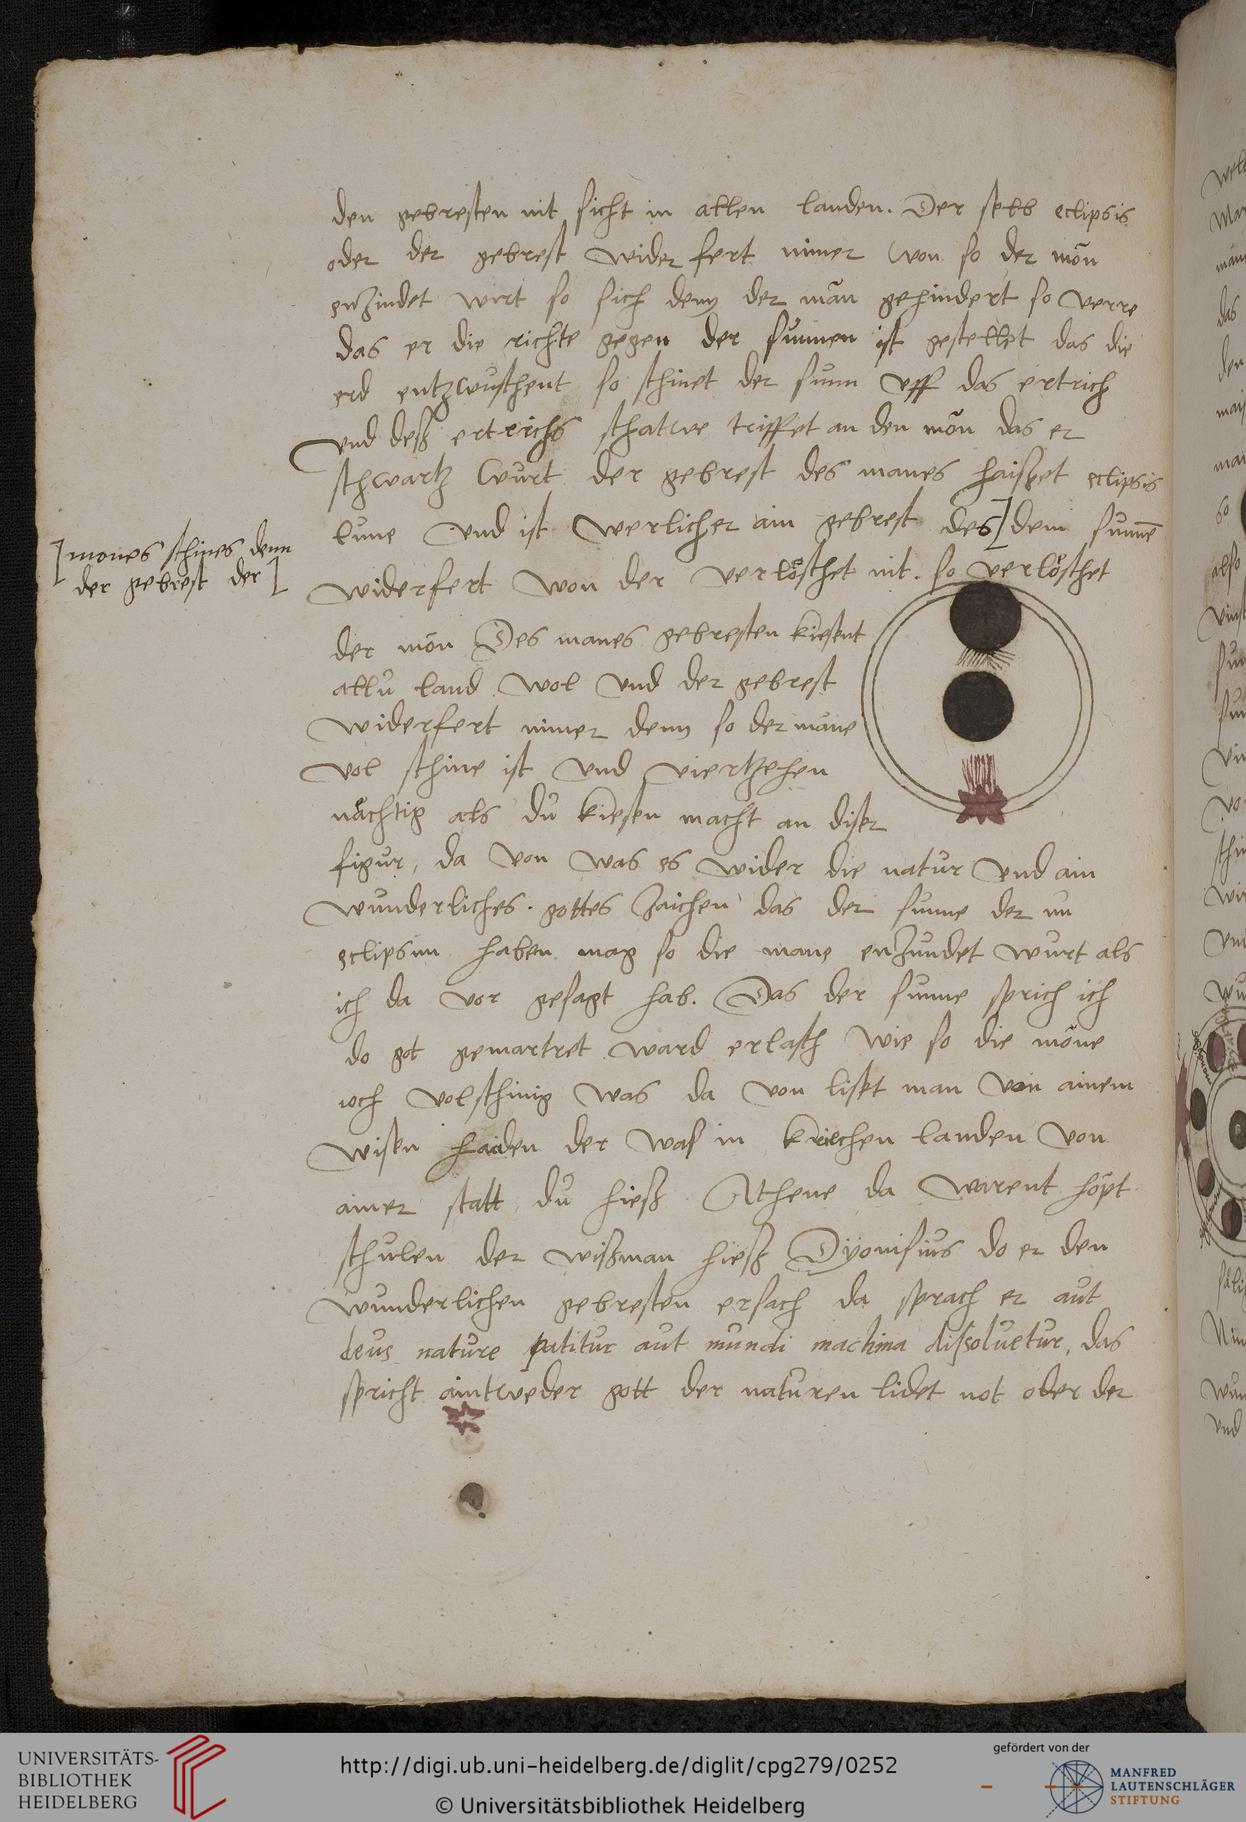 den gebresten nit sicht in allen landen. Der selb eclipsis
oder der gebrest wider fert nimer won so der mön
enzindet wirt so sich denn der man gehindert so verre
das er die richte gegen der sunnen ist gestellet das die
erd entzwuschent so schinet der sunn uff das ertrich
und deß ertrichs schatwe triffet an den mön das er
schwartz wurt der gebrest des manes haisset eclipsis
lune und ist werlicher ain gebrest des] dem sunnē
[mones schines denn
der gebrest der]
widerfert won der verlöschet nit. so verlöschet
der mön Des manes gebresten kiesent
allu land wol und der gebrest
widerfert nimer denn so der mane
vol schine ist und viertzehen
nächtig als du kiesen macht an diser
figur, da von was es wider die natur und ain
wunderliches gottes zaichen das der sunne der un
eclipsim haben mag so die mane enzundet wurt als
ich da vor gesagt hab. Das der sunne sprich ich
do got gemartret ward erlasch wie so die möne
och volschinig was da von liset man von ainem
wisen haiden der was in kriechen landen von
ainer statt du hieß Athene da warent höpt
schulen der wißman hieß Dyonisius do er den
wunderlichen gebresten ersach da sprach er aut
deus nature patitur aut mundi machina dissoluetur, das
spricht aintweder gott der naturen lidet not oder der
UNIVERSITÄTS-
BIBLIOTHEK
HEIDELBERG
http://digi.ub.uni-heidelberg.de/diglit/cpg279/0252
© Universitätsbibliothek Heidelberg
gefördert von der
MANFRED
LAUTENSCHLÄGER
STIFTUNG